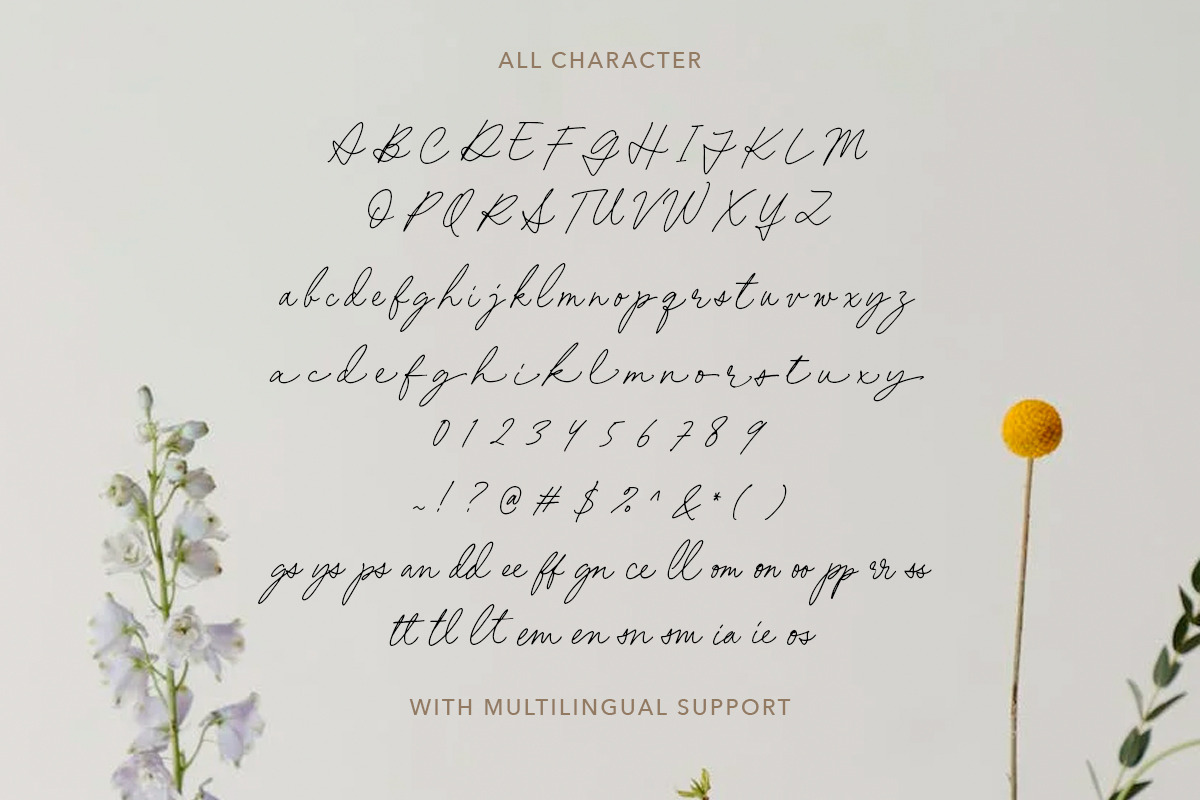 ALL CHARACTER
A B C D E F G H I J K L M
O P Q R S T U V W X Y Z
a b c d e f g h i j k l m n o p q r s t u v w x y z
a c d e f g h i k l m n o r s t u x y
0 1 2 3 4 5 6 7 8 9
~ ! ? @ # $ % ^ & * ( )
gs ys ps an dd ee ff gn ce ll om on oo pp rr ss
tt tl lt em en sn sm ia ie os
WITH MULTILINGUAL SUPPORT